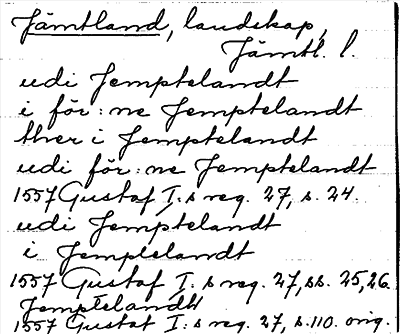 Jämtland, landskap,
Jämtl. l.
udi Jemptelandt
i för: ne Jemptelandt
ther i Jemptelandt
udi för: ne Jemptelandt
1557 Gustaf I:s reg. 27, s. 24.
udi Jemptelandt
i Jemptelandt
1557 Gustaf I:s reg. 27, ss. 25, 26.
Jemptelandt
1557 Gustaf I:s reg. 27, s. 110. orig.